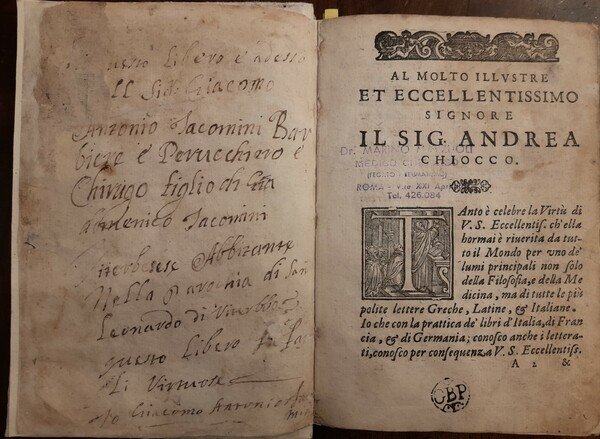 questo Libero è adesso
Il Sig: Giacomo
Antonio Jacomini Bar
biere è Perucchiero è
Chirugo figlio di
domenico Jacomini
Viterbese Abbitante
Nella Parochia di San
Leonardo di Viterbbo
questo Libero
di Virtuose
Io Giacomo Antonio
AL MOLTO ILLVSTRE
ET ECCELLENTISSIMO
SIGNORE
IL SIG. ANDREA
CHIOCCO.
DR. MARINO
MEDICO
ROMA - XXI
Tel. 426.084
TAnto è celebre la Virtù di
V. S. Eccellentiſ. ch'ella
hormai è riuerita da tut-
to il Mondo per vno de'
lumi principali non ſolo
della Filoſofia, e della Me
dicina, ma di tutte le più
polite lettere Greche, Latine, & Italiane.
Io che con la prattica de' libri d'Italia, di Fran
cia, & di Germania; conoſco anche i lettera-
ti, conoſco per conſequenza V. S. Eccellentiſſ.
A 2 &
CBP